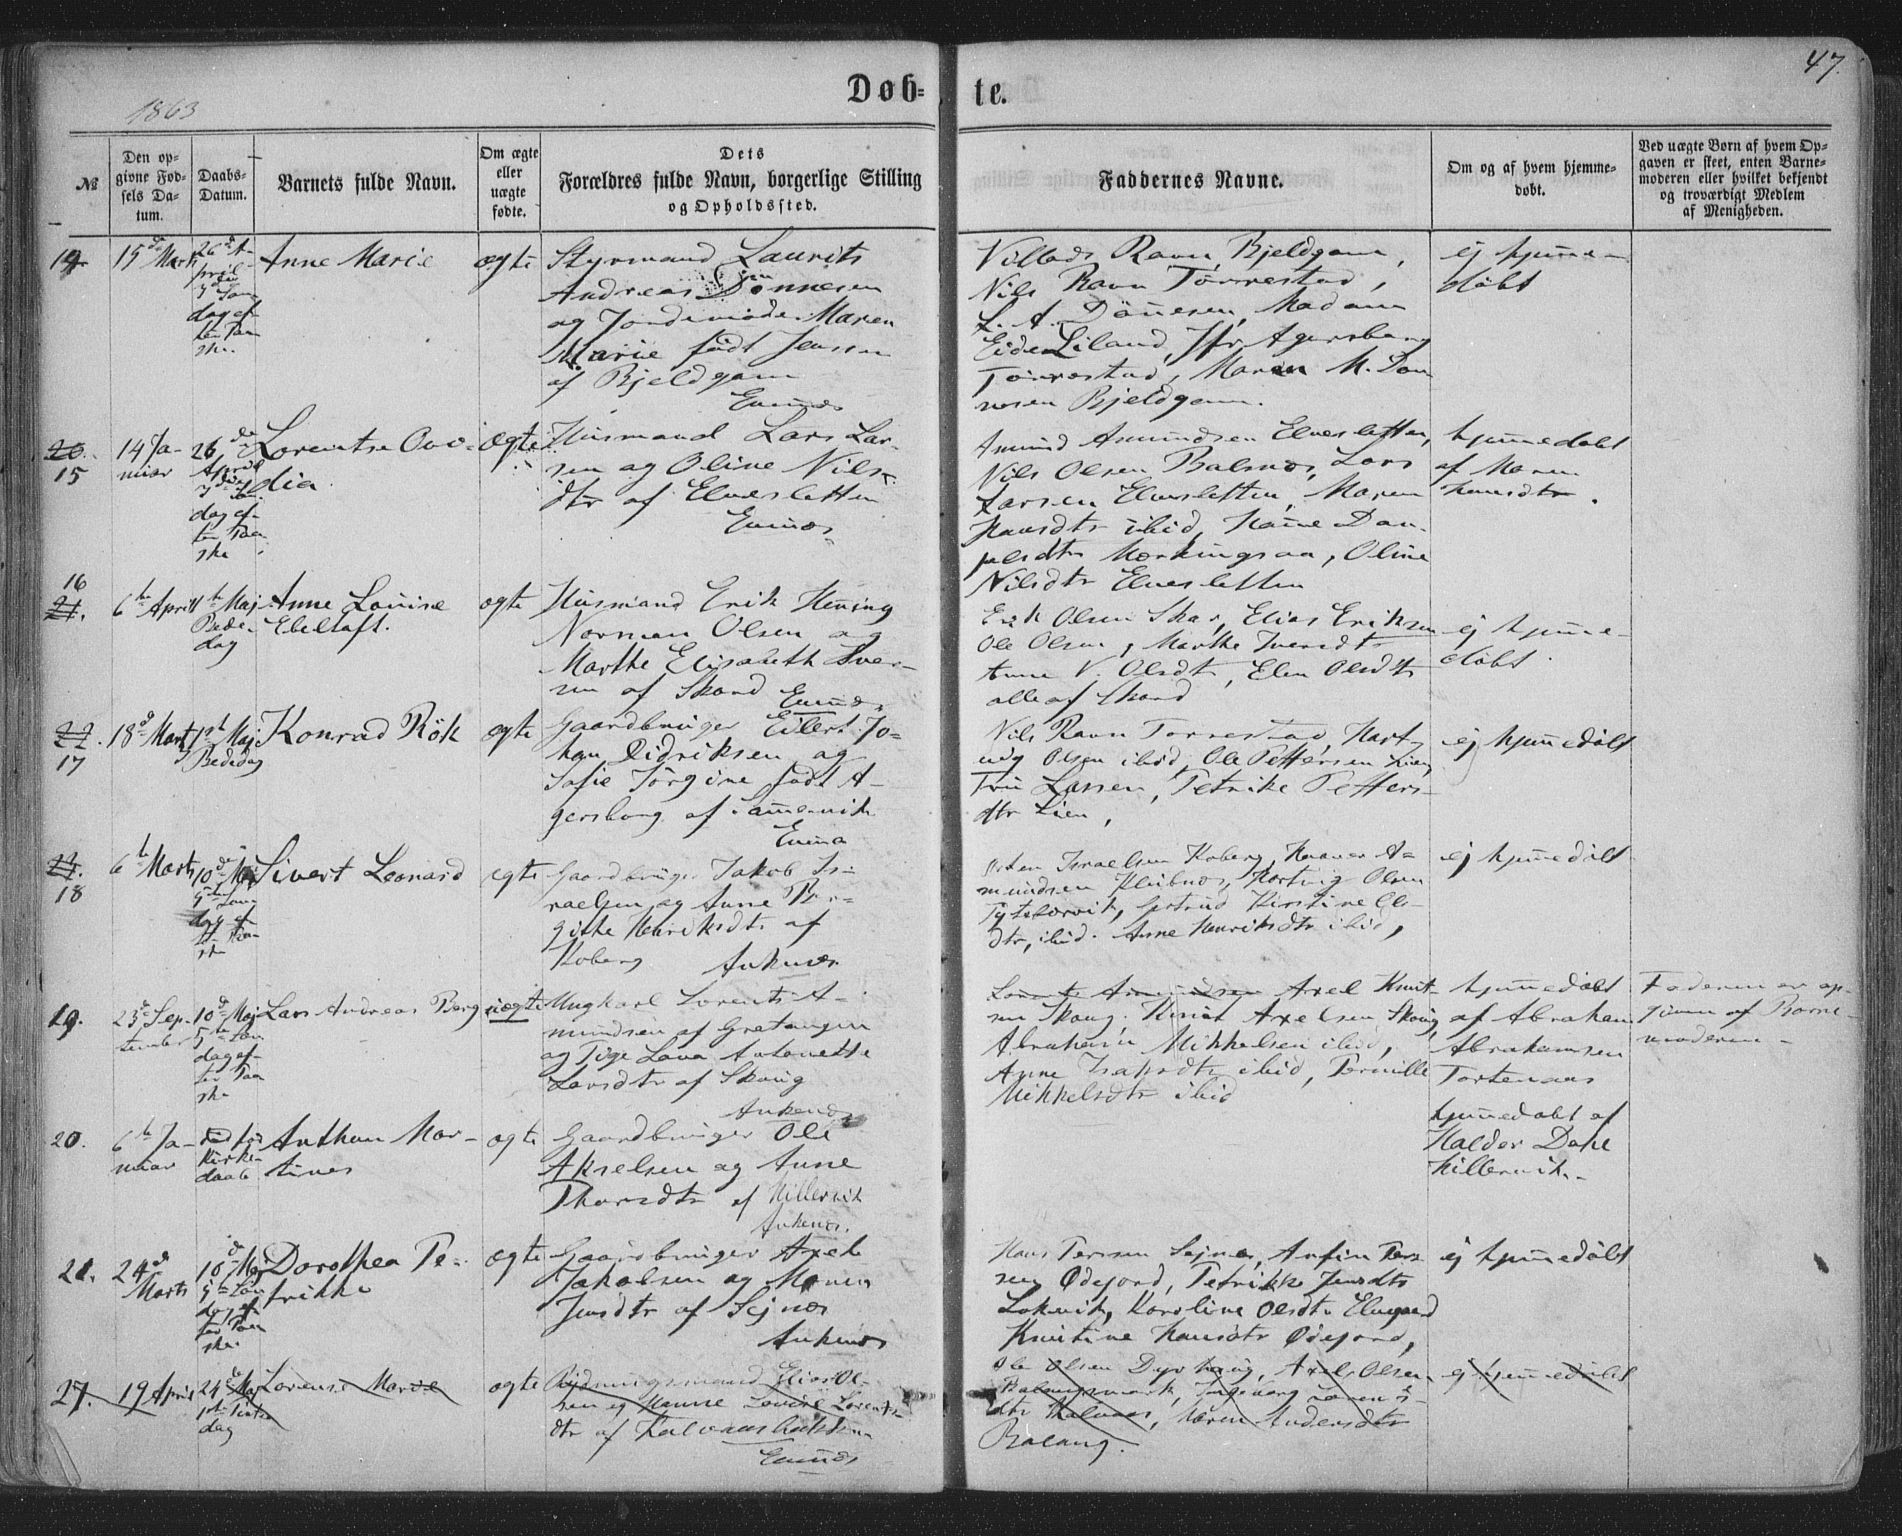 47.
1863
Døb- te.
№
Den op-
givne Fød-
sels Da-
tum.
Daabs-
Datum.
Barnets fulde Navn.
Om ægte
eller
uægte
fødte.
Dets
Forældres fulde Navn, borgerlige Stilling
og Opholdssted.
Faddernes Navne.
Om og af hvem hjemme-
døbt.
Ved uægte Børn af hvem Op-
gaven er skeet, enten Barne-
moderen eller hvilket bekjendt
og troværdigt Medlem
af Menigheden.
14.
15 Marts
26 A-
pril
3 Søn
dag ef-
ter Paa-
ske.
Anne Marie
ægte
Styrmand Laurits
Andreas Dønnesen
og Jordemoder Maren
Marie født Jensen
af Bjeldgam
Evenæs
Villads Ravn, Bjeldgam,
Nils Ravn Tørrestad,
L. A. Dönnesen, Madam
Eide Liland, Jfr Agersborg
Tørrestad, Maren M. Dön
nesen Bjeldgam.
ej hjemme-
döbt
20.
15
14 Ja-
nuar
26 de
April
3 Søn
dag ef-
ter Paa
ske
Lorentse Ovi-
dia
ægte
Husmand Lars Lar-
sen og Oline Nils-
dtr af Elvesletten
Evenæs
Amund Amundsen Elvesletten,
Nils Olsen Balsnæs, Lars
Larsen Elvesletten, Maren
Hansdtr ibid, Hanne Dan-
jelsdtr Mørkingsaa, Oline
Nilsdtr Elvesletten
hjemmedøbt
af Maren
Hansdtr.
16
21.
6te April
1ste Maj
Bede-
dag
Anne Lovise
Ebeltoft.
ægte
Husmand Erik Hening
Norman Olsen og
Marthe Elisabeth Iver-
sen af Skard
Evenæs
Erik Olsen Skar, Elias Eriksen
Ole Olsen, Marthe Iversdtr
Anne V. Olsdtr, Elen Olsdtr
alle af Skard
ej hjemme-
døbt.
22.
17
18 Marts
1ste Maj
Bededag
Konrad Rök
ægte
Gaardbruger Eilert Jo-
han Didriksen og
Sofie Jørgine født A-
gersborg af
Evenæs
Nils Ravn Tørrestad, Hart-
vig Olsen ibid, Ole Pettersen Lien,
Lassen, Petrike Petters-
dtr Lien,
ej hjemmedøbt
23.
18
6te Marts
10 de Maj
5te Søn
dag ef-
ter Paa-
ske
Sivert Leonard
ægte
Gaardbruger Jakob Is-
raelsen og Anne Bir-
gitte Henriksdtr af
Koberg
Ankenæs
Israelsen Koberg, A-
mundsen Klubnæs, Hartvig Olsen
Kirstine Ols-
dtr, ibid. Anne Henriksdtr ibid,
ej hjemmedøbt
19.
23 de Sep-
tember
10 de Maj
5te Søn
dag ef-
ter Paa
ske
Lars Andreas Berg
uægte
Ungkarl Lorents A-
mundsen af Gratangen
og Pige Lava Antonette
Larsdtr af Skoug
Ankenæs
Lorents Amundsen Axel Knut-
sen Skoug, Knut Axelsen Skoug,
Abraham Mikkelsen ibid,
Anne Isaksdtr ibid, Pernille
Mikkelsdtr ibid
hjemmedøbt
af Abraham
Abrahamsen
Tortenaas
Faderen er op-
given af Barne-
moderen-
20.
6te Ja-
nuar
død før
Kirke-
daab
Anthon Mar-
tines
ægte
Gaardbruger Ole
Akselsen og Anne
Thorsdtr af Hillervik
Ankenæs.
hjemmedøbt af
Haldor Dahl
Hillervik.
21.
24 d
Marts
10 de Maj
5te Søn
dag ef-
ter Paa
ske.
Dorothea Pe-
trikke
ægte
Gaardbruger Axel
Jakobsen og Maren
Jensdtr af Sejnæs
Ankenæs
Hans Persen Sejnæs, Arfin Per-
sen Ødejord, Petrikke Jensdtr
Lakvik, Karoline Olsdtr Elvegaard
Knutine Hansdtr Ødejord,
ej hjemmedøbt
27.
19 April
24 de Maj
1ste Pintse
dag
Lorense Marie
ægte
Rydningsmand Elias Ol-
sen og Hanne Lovise Lorents-
dtr af
Evenæs
Ole Olsen Dyrhaug, Axel Olsen
Balangsmark, Ingeborg Lorents-
dtr, Maren Andersdtr
Balang.
ej hjemmedøbt